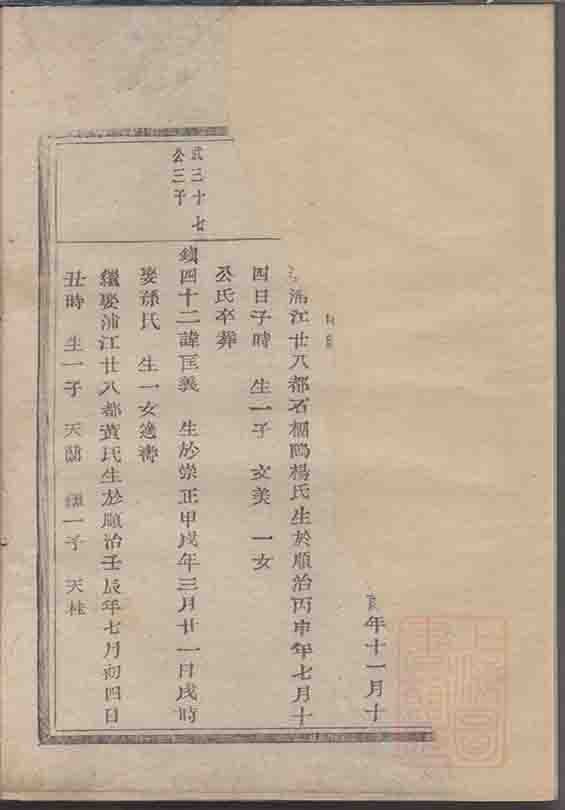 年十一月十
浦江廿八都石櫃鴎楊氏生於順治丙申年七月十
四日子時 生一子 文美 一女
公氏卒葬
武三十七
公三子
鎮四十二諱匡義 生於崇正甲戌年三月廿一日戌時
娶孫氏 生一女逸濤
繼娶浦江廿八都黃氏生於順治壬辰年七月初四日
丑時 生一子 天蘭 繼一子 天桂